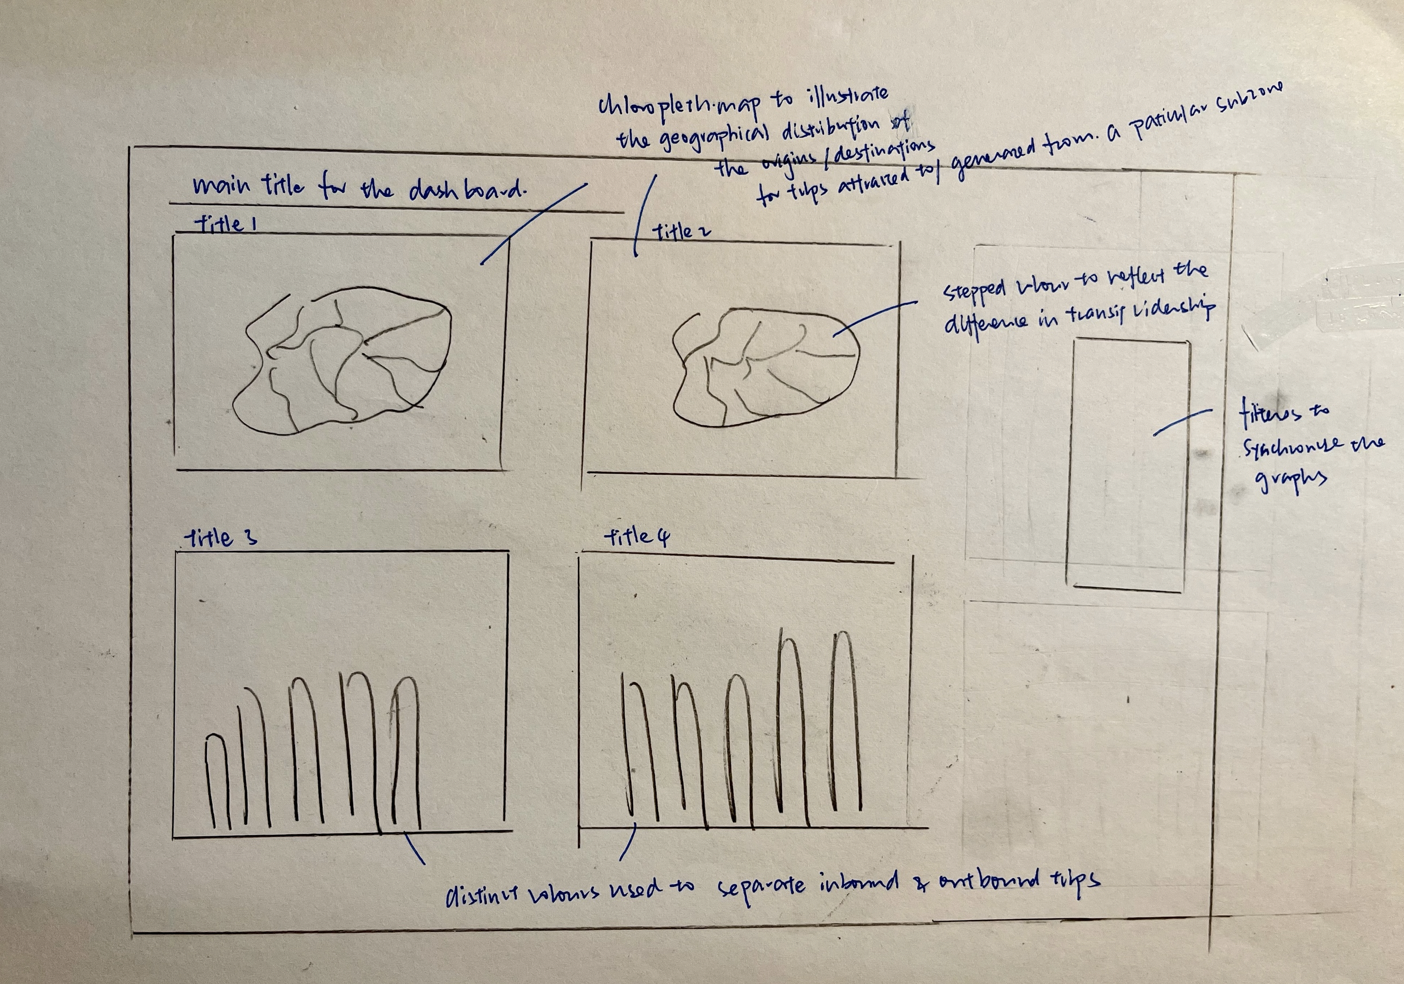 chloropleth map to illustrate
the geographical distribution of
the origins / destinations
for trips attracted to/ generated from a paticular subzone
main title for the dashboard.
title 1
title 2
stepped colour to reflect the
difference in transit ridership
filteres to
synchronize the
graphs
title 3
title 4
distinct colours used to separate inbound & outbound trips